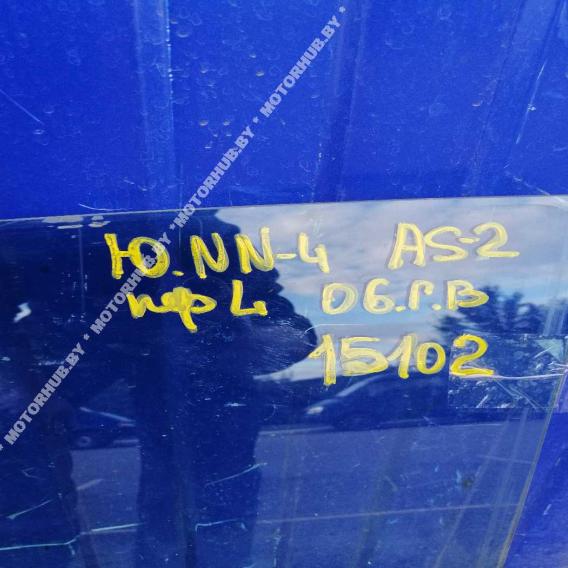 Ю.NN-4 AS-2
пер L 06.Г.В
15102
* MOTORHUB.BY * MOTORHUB.BY * MOTORHUB.BY * MOTORHUB.BY